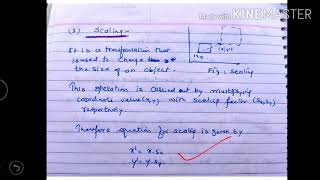 Made with KINEMASTER
(3) Scaling -
It is a transformation that
is used to change
the size of an object.
Fig: Scaling
This operation is carried out by multiplying
coordinate value (x,y) with scaling factor (Sx, Sy)
respectively.
Therefore equation for scaling is given by
x' = x.Sx
y' = y.Sy